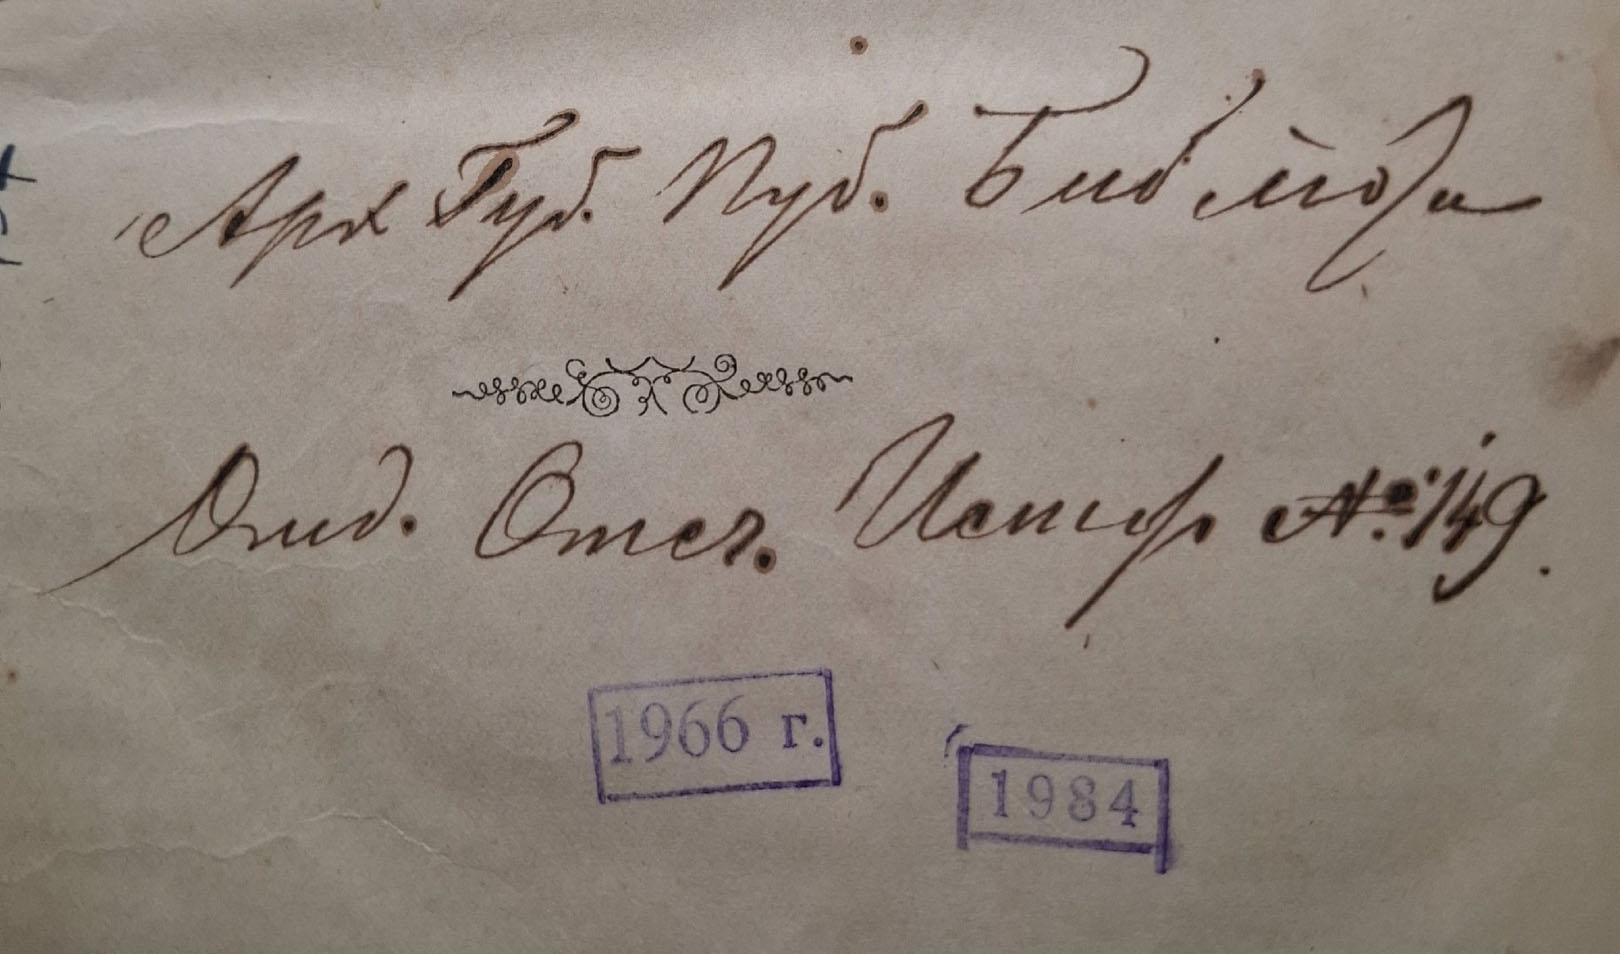 Арх Губ. Пуб. Библіот
Отд. Отеч. Истор №149.
1966 г.
1984